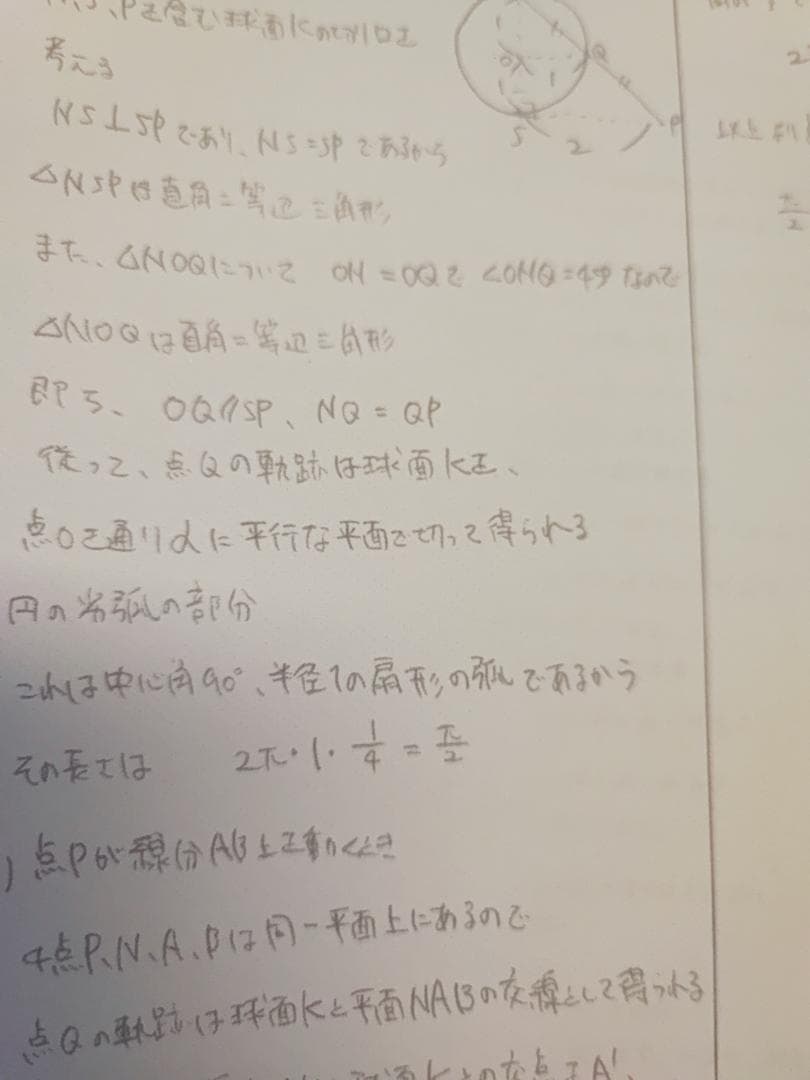 Pを含む球面Kの切り口を
考える
NS⊥SPであり、NS=SPであるから
△NSPは直角二等辺三角形
また、△NOQについて ON=OQで∠ONQ=45°なので
△NOQは直角二等辺三角形
即ち、OQ//SP、NQ=QP
従って、点Qの軌跡は球面Kを、
点Oを通りαに平行な平面で切って得られる
円の劣弧の部分
これは中心角90°、半径1の扇形の弧であるから
その長さは 2π・1・1/4=π/2
) 点Pが線分AB上を動くとき
4点P、N、A、Bは同一平面上にあるので
点Qの軌跡は球面Kと平面NABの交線として得られる
球面Kとの交点をA'、
O
1
Q
S
2
P
2
π/2